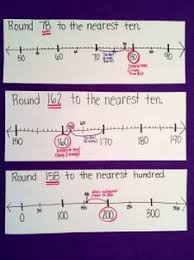 Round 78 to the nearest ten.
50 60 70 80 90
Round 162 to the nearest ten.
150 160 170 180 190
Round 158 to the nearest hundred.
0 100 200 300